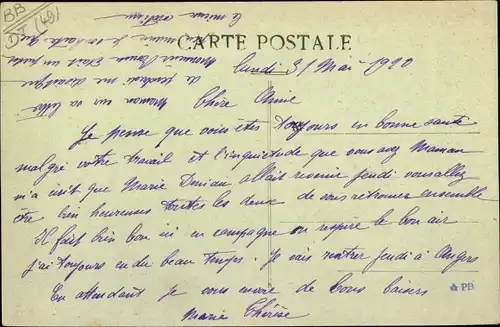 BB
DJ (49)
CARTE POSTALE
lundi 31 Mai 1920
Chère Amie
Je pense que vous êtes toujours en bonne santé
malgré votre travail et l'inquiétude que vous avez Maman
m'a écrit que Marie allait revenir jeudi vous allez
être bien heureuses toutes les deux de vous retrouver ensemble
Il fait bien bon ici en campagne on respire le bon air
j'ai toujours eu du beau temps. Je vais rentrer jeudi à Angers
En attendant je vous envoie de bons baisers
Marie Thérèse
PB
Maman sur sa lettre
me disait que
Monsieur était un peu
je souhaite que